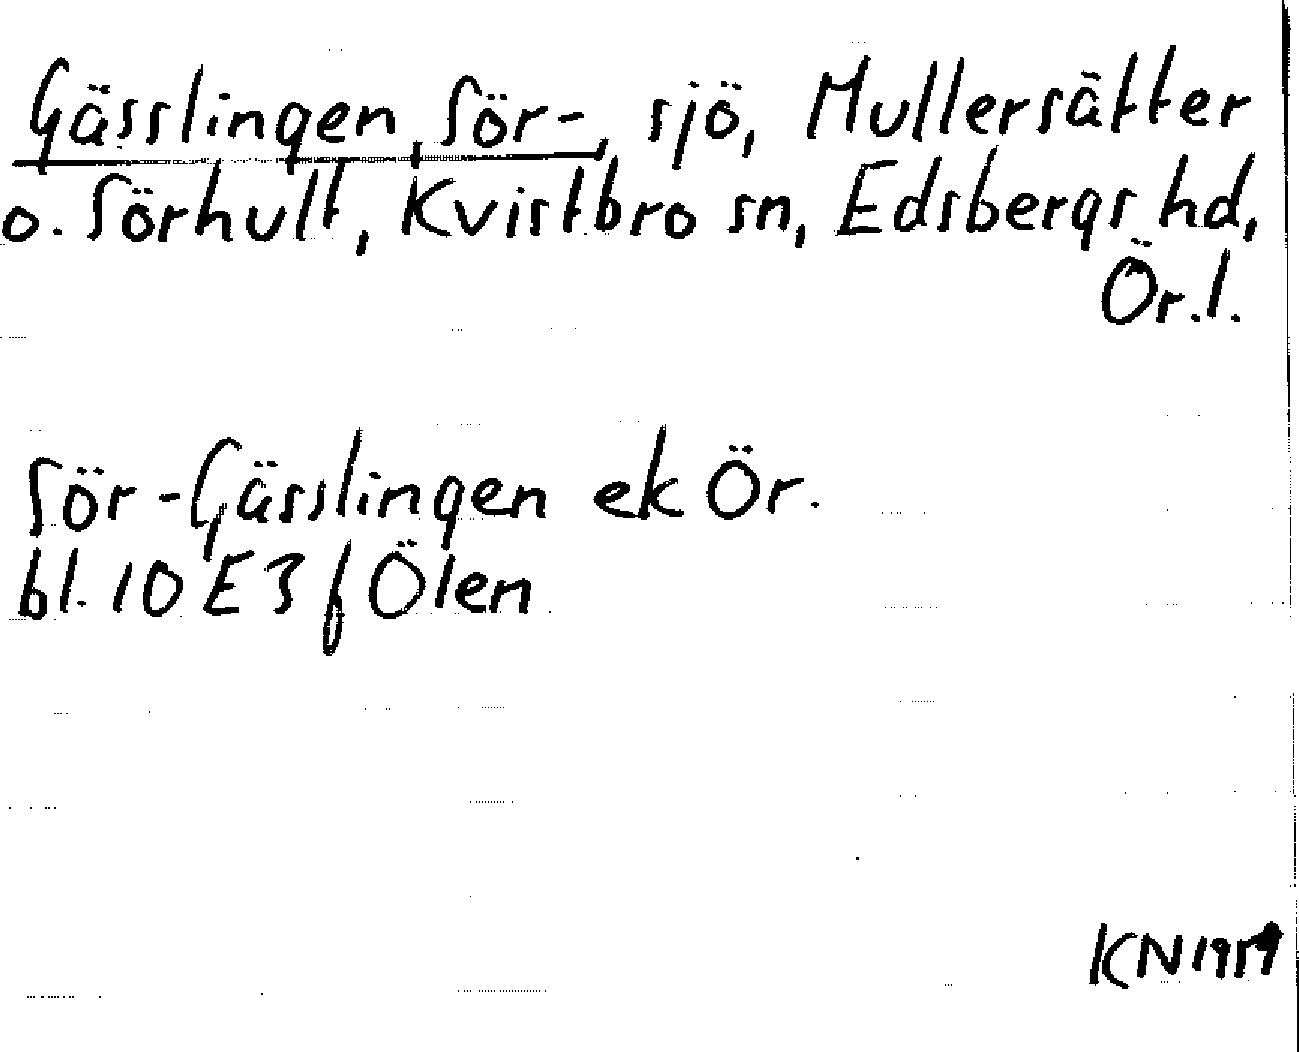 Gässlingen, Sör-, sjö, Mullersätter
o. Sörhult, Kvistbro sn, Edsbergs hd,
Ör.l.
Sör-Gässlingen ek Ör.
bl. 10 E 3 f Ölen
KN 1959